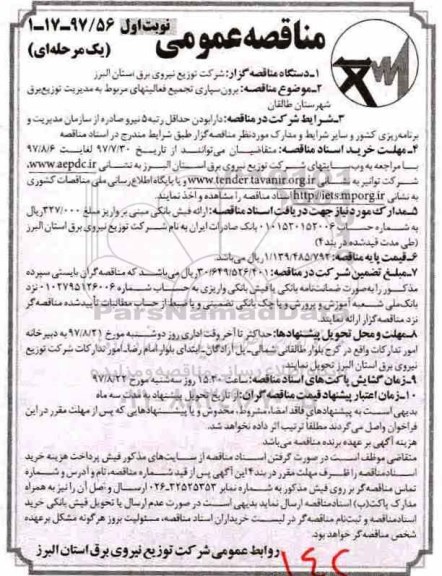 مناقصه عمومی
نوبت اول ۹۷/۵۶-۱۷-۱
(یک مرحله‌ای)
۱-دستگاه مناقصه گزار: شرکت توزیع نیروی برق استان البرز
۲-موضوع مناقصه: برون‌سپاری تجمیع فعالیتهای مربوط به مدیریت توزیع برق
شهرستان طالقان
۳-شرایط شرکت در مناقصه: دارا بودن حداقل رتبه ۵ نیرو صادره از سازمان مدیریت و
برنامه‌ریزی کشور و سایر شرایط و مدارک مورد نظر مناقصه گزار طبق شرایط مندرج در اسناد مناقصه
۴-مهلت خرید اسناد مناقصه: متقاضیان می‌توانند از تاریخ ۹۷/۷/۳۰ لغایت ۹۷/۸/۶
با مراجعه به وب سایتهای شرکت توزیع نیروی برق استان البرز به نشانی www.aepdc.ir،
شرکت توانیر به نشانی www.tender.tavanir.org.ir و یا پایگاه اطلاع رسانی ملی مناقصات کشوری
به نشانی http://iets.mporg.ir اسناد مناقصه را مشاهده و اخذ نمایند.
۵-مدارک مورد نیاز جهت دریافت اسناد مناقصه: ارائه فیش بانکی مبنی بر واریز مبلغ ۳۲۷/۰۰۰ ریال
به شماره حساب ۰۱۰۱۵۳۰۱۵۲۰۰۶ بانک صادرات ایران به نام شرکت توزیع نیروی برق استان البرز
(طی مدت قید شده در بند ۴)
۶-قیمت پایه مناقصه: ۱/۱۳۹/۴۸۵/۷۹۲ ریال می‌باشد.
۷-مبلغ تضمین شرکت در مناقصه: ۳۰/۶۴۹/۵۲۶/۴۰۱ ریال می‌باشد که مناقصه گران بایستی سپرده
مذکور را به صورت ضمانت‌نامه بانکی یا فیش بانکی واریزی به حساب شماره ۰۱۰۲۷۹۵۱۲۶۰۰۶ نزد
بانک ملی شعبه آموزش و پرورش و یا چک بانکی تضمینی و یا ضبط از حساب مطالبات تأیید شده مناقصه گر
نزد مناقصه گزار ارائه نمایند.
۸-مهلت و محل تحویل پیشنهادها: حداکثر تا آخر وقت اداری روز دوشنبه مورخ ۹۷/۸/۲۱ به دبیرخانه
امور تدارکات واقع در کرج بلوار طالقانی شمالی-پل آزادگان-ابتدای بلوار امام رضا-امور تدارکات شرکت توزیع
نیروی برق استان البرز تحویل نمایند.
۹-زمان گشایش پاکت‌های اسناد مناقصه: ساعت ۱۵:۳۰ روز سه‌شنبه مورخ ۹۷/۸/۲۲
۱۰-زمان اعتبار پیشنهاد قیمت مناقصه گران: از تاریخ تحویل پیشنهاد به مدت سه ماه
بدیهی است به پیشنهادهای فاقد امضا، مشروط، مخدوش و یا پیشنهادهایی که پس از مهلت مقرر در این
فراخوان واصل می‌گردند مطلقا ترتیب اثر داده نخواهد شد.
هزینه آگهی بر عهده برنده مناقصه می‌باشد.
متقاضی موظف است در صورت گرفتن اسناد مناقصه از سایت‌های مذکور فیش پرداخت هزینه خرید
اسناد مناقصه را ظرف مهلت مقرر در بند ۴ این آگهی پس از قید شماره مناقصه، نام و آدرس و شماره
تماس مناقصه گر بر روی فیش مذکور به شماره نمابر ۳۲۵۲۵۳۵۳-۰۲۶ ارسال و اصل آن را نیز به همراه
مدارک پاکت (ب) اسناد مناقصه ارسال نماید بدیهی است در صورت عدم ارسال یا تحویل فیش بانکی خرید
اسناد مناقصه و ثبت نام مناقصه گر در لیست خریداران اسناد مناقصه، مسئولیت بروز هرگونه مشکل بر عهده
شخص مناقصه گر خواهد بود.
روابط عمومی شرکت توزیع نیروی برق استان البرز